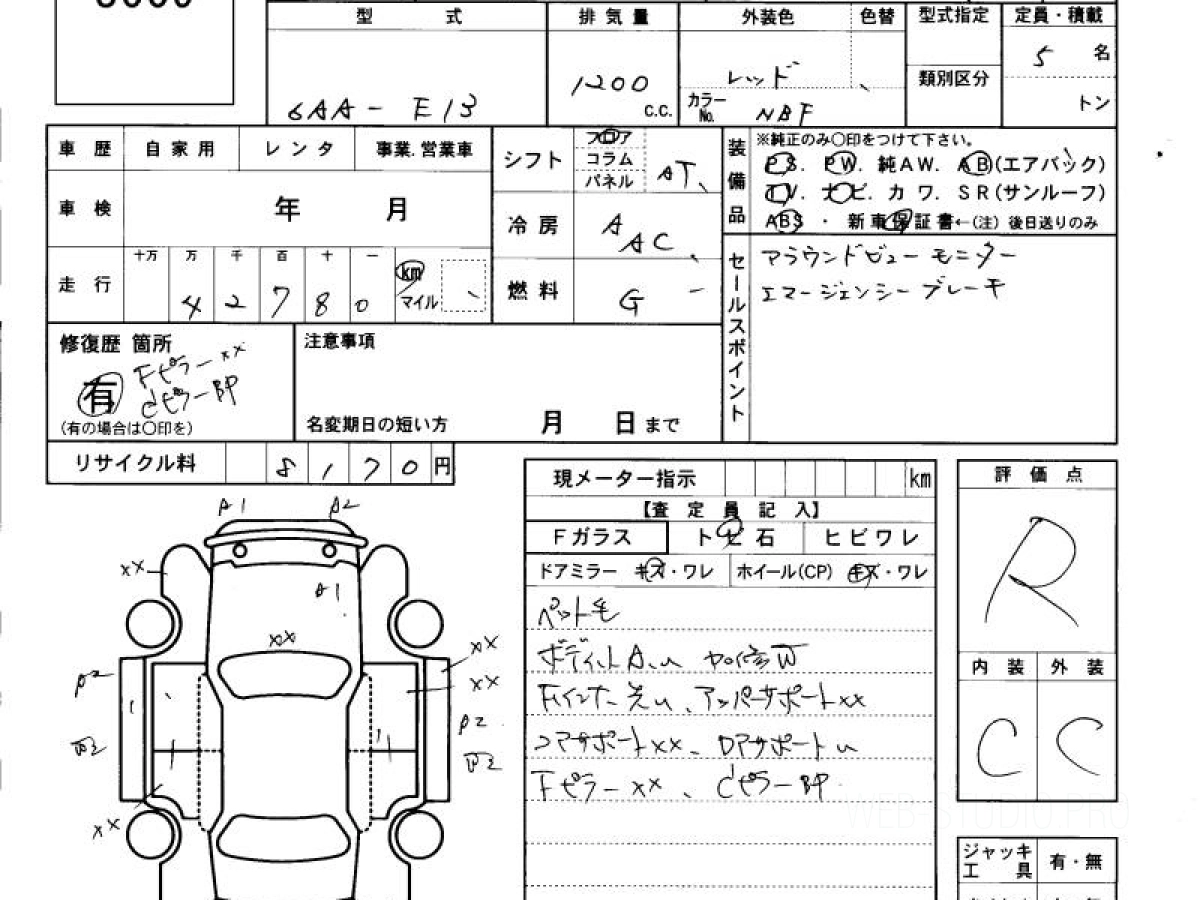 型 式 排気量 外装色 色替 型式指定 定員・積載
6AA- E13 1200 C.C. レッド 5 名
カラーNo. NBF 類別区分 トン
車歴 自家用 レンタ 事業.営業車
シフト フロア コラム パネル AT
装備品 ※純正のみ〇印をつけて下さい。
PS. PW. 純AW. AB(エアバック)
TV. ナビ. カワ. SR(サンルーフ)
ABS ・ 新車保証書←(注) 後日送りのみ
車検 年 月
冷房 AAC
走行 十万 万 千 百 十 一
4 2 7 8 0 km マイル
燃料 G
セールスポイント
アラウンドビューモニター
エマージェンシーブレーキ
修復歴 箇所
有
Fピラーxx
CピラーBP
(有の場合は〇印を)
注意事項
名変期日の短い方 月 日まで
リサイクル料 8 1 7 0 円
現メーター指示 km
【査定員記入】
Fガラス トビ石 ヒビワレ
ドアミラー キズ・ワレ ホイール(CP) キズ・ワレ
ペット毛
コアサポートxx、ロアサポート
Fピラーxx、CピラーBP
評価点
R
内装 外装
C C
ジャッキ 工具 有・無
A1 A2
xx
A1
xx
xx
xx
A2
xx
WEB-STUDIO.PRO